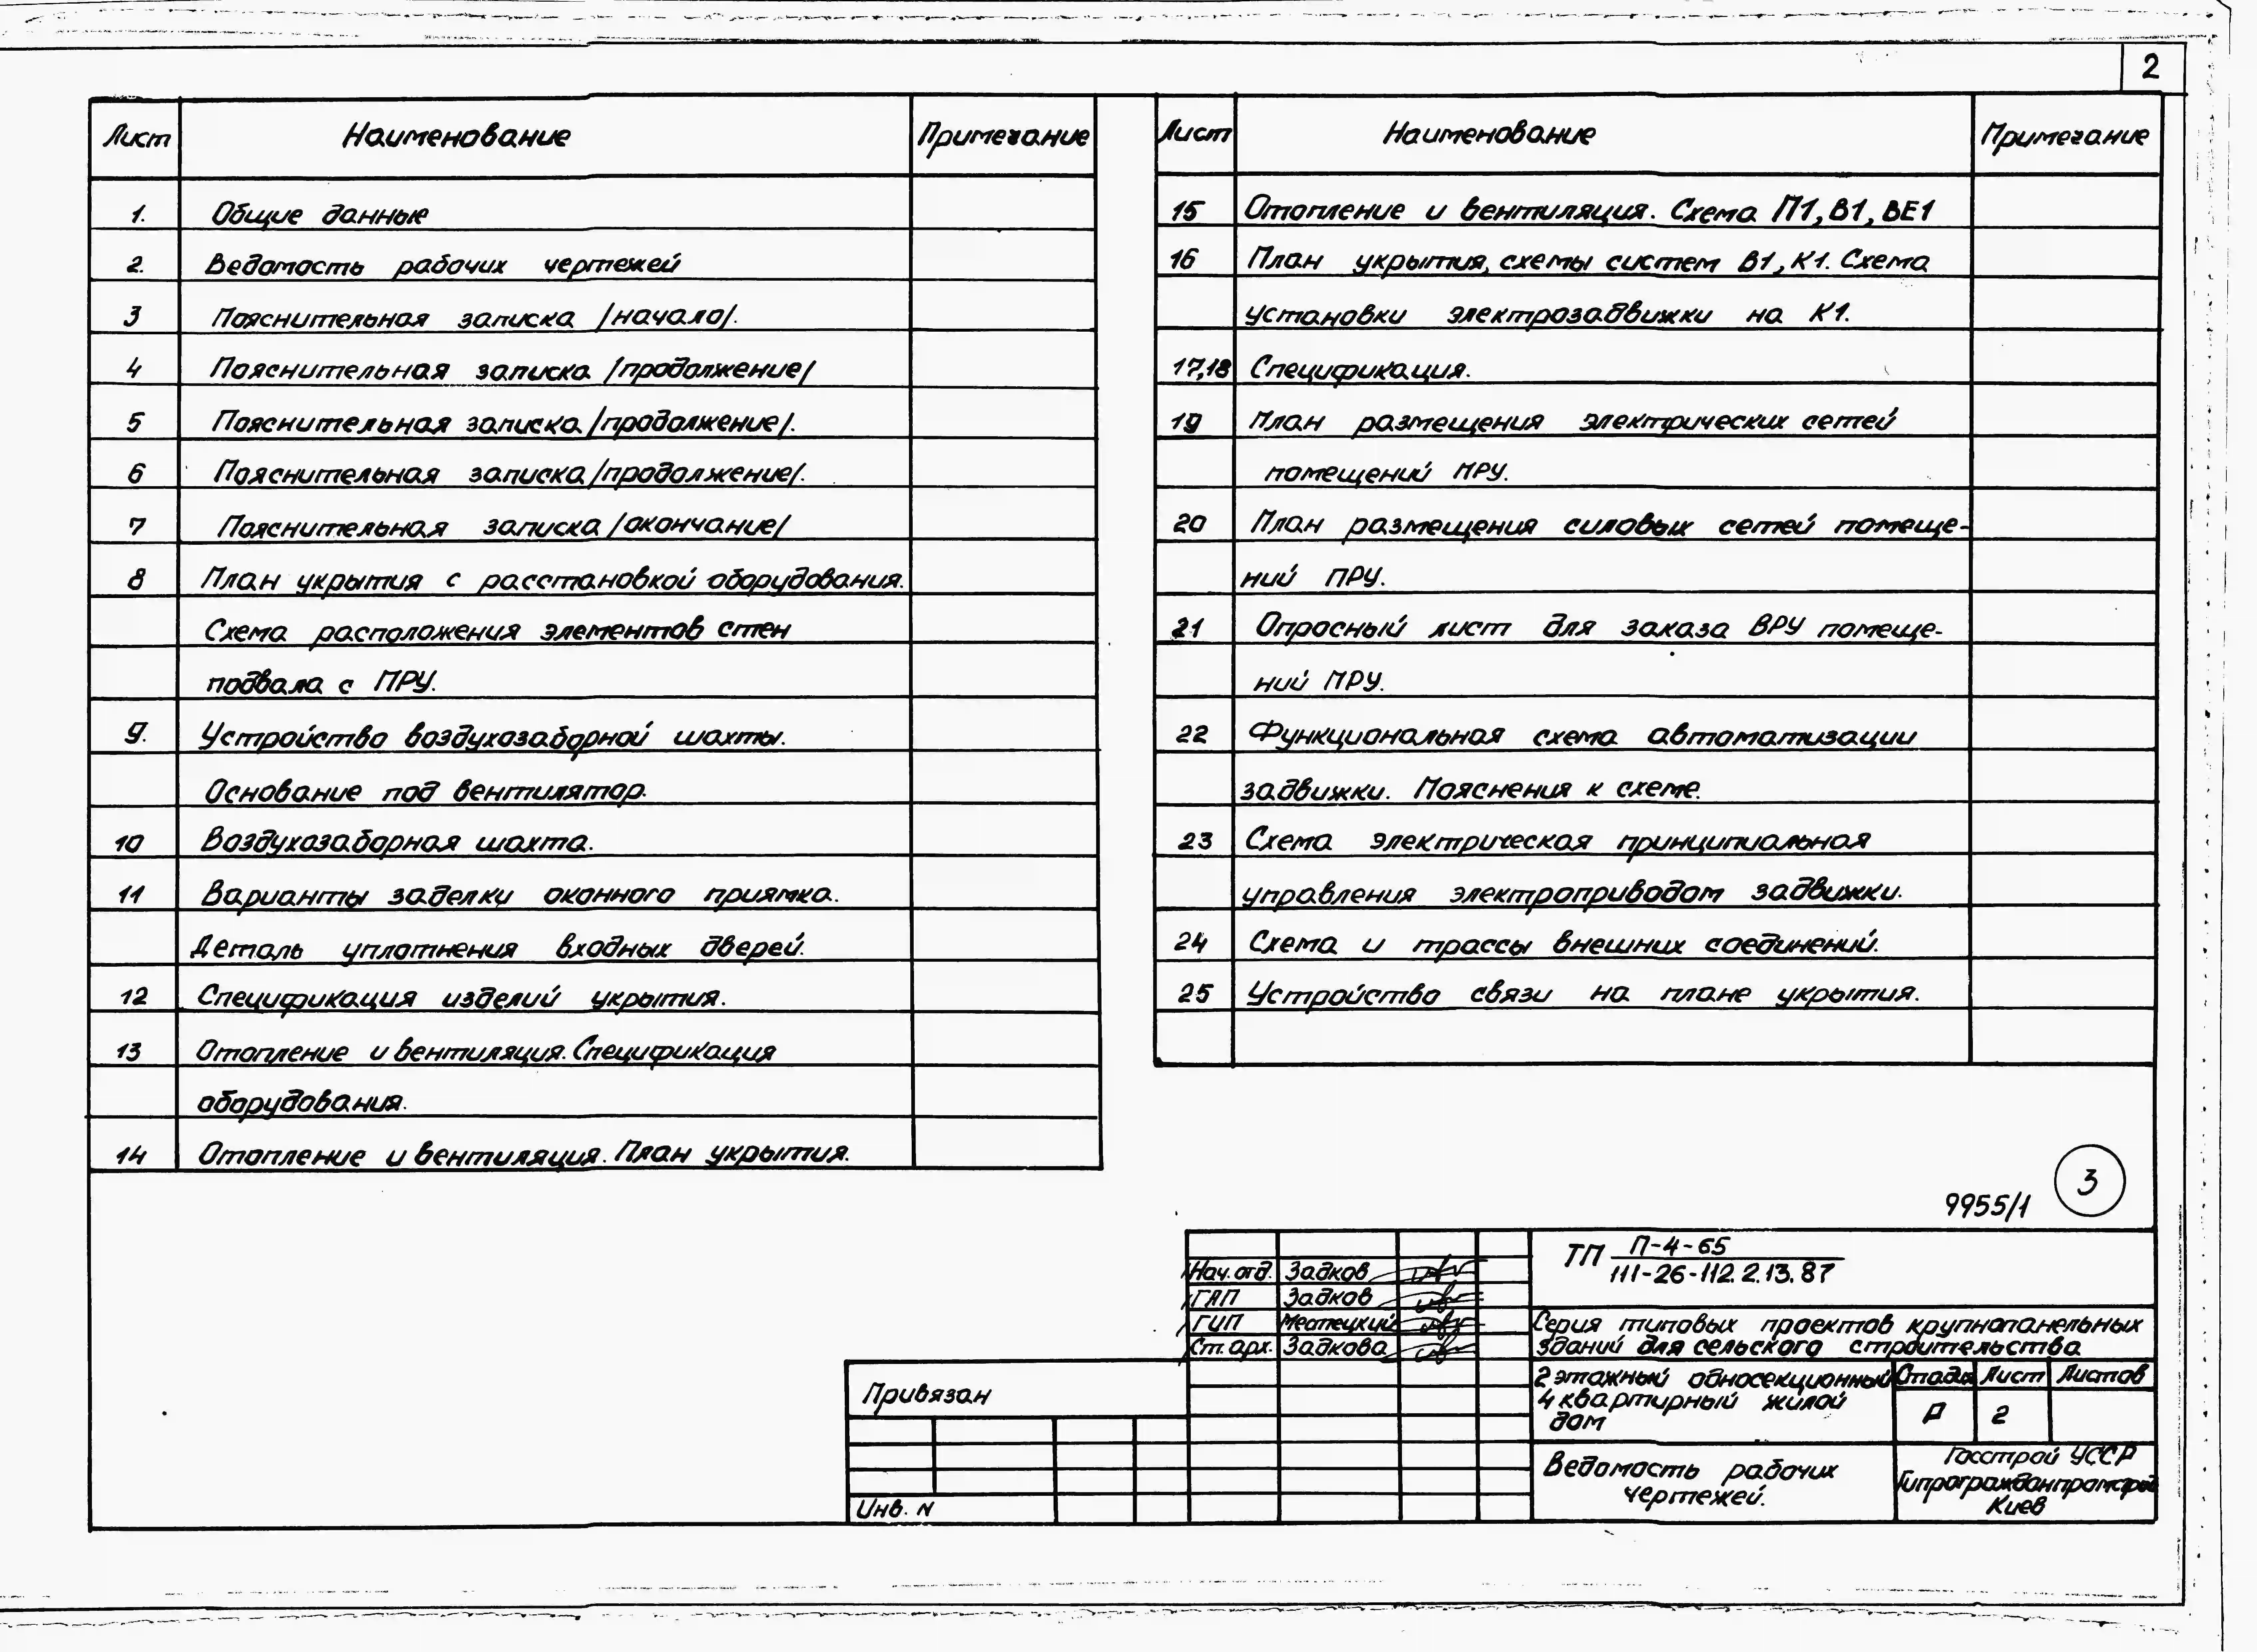 2
Лист Наименование Примечание
1. Общие данные
2. Ведомость рабочих чертежей
3 Пояснительная записка /начало/.
4 Пояснительная записка /продолжение/
5 Пояснительная записка /продолжение/.
6 Пояснительная записка /продолжение/.
7 Пояснительная записка /окончание/
8 План укрытия с расстановкой оборудования.
Схема расположения элементов стен
подвала с ПРУ.
9. Устройство воздухозаборной шахты.
Основание под вентилятор.
10 Воздухозаборная шахта.
11 Варианты заделки оконного приямка.
Деталь уплотнения входных дверей.
12 Спецификация изделий укрытия.
13 Отопление и вентиляция. Спецификация
оборудования.
14 Отопление и вентиляция. План укрытия.
Лист Наименование Примечание
15 Отопление и вентиляция. Схема П1, В1, ВЕ1
16 План укрытия, схемы систем В1, К1. Схема
установки электрозадвижки на К1.
17,18 Спецификация.
19 План размещения электрических сетей
помещений ПРУ.
20 План размещения силовых сетей помеще-
ний ПРУ.
21 Опросный лист для заказа ВРУ помеще-
ний ПРУ.
22 Функциональная схема автоматизации
задвижки. Пояснения к схеме.
23 Схема электрическая принципиальная
управления электроприводом задвижки.
24 Схема и трассы внешних соединений.
25 Устройство связи на плане укрытия.
9955/1 3
ТП П-4-65
111-26-112.2.13.87
Нач. отд. Задков
ГАП Задков
ГИП Местецкий
Ст. арх. Задкова
Серия типовых проектов крупнопанельных
зданий для сельского строительства
2 этажный односекционный
4 квартирный жилой
дом
Стадия Лист Листов
Р 2
Ведомость рабочих
чертежей.
Госстрой УССР
Гипрогражданпромстрой
Киев
Привязан
Инв. N